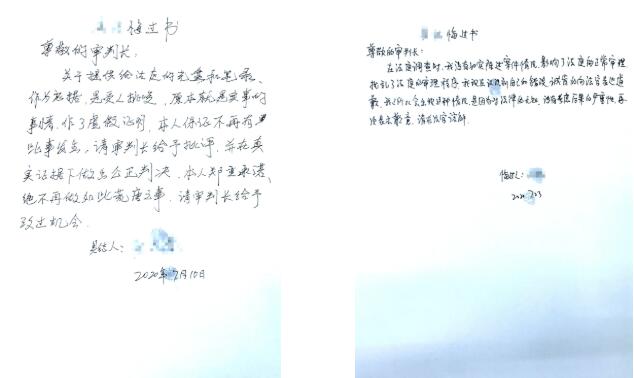 悔过书
尊敬的审判长.
关于提供给法庭的光盘和笔录、
作为证据,是受人挑唆,原本就是卖事的
事情,作了虚假证明,本人保证不再有
此事发生,请审判长给予批评,并在真
实话据下做出公正判决,本人郑重承诺,
绝不再做如此荒唐之事,请审判长给予
改过机会.
具结人:
2020年 月10日
悔过书
尊敬的审判长:
在法庭调查时,我没有如实陈述案件情况,影响了法庭的正常审理
扰乱了法庭的审理程序,我现在认识到自己的错误,诚心向法官表达道
歉,我之所以会出现这种情况,是因为对法律的无知,没有考虑后果的严重性,再
次表示歉意,请求法官谅解.
悔过人: